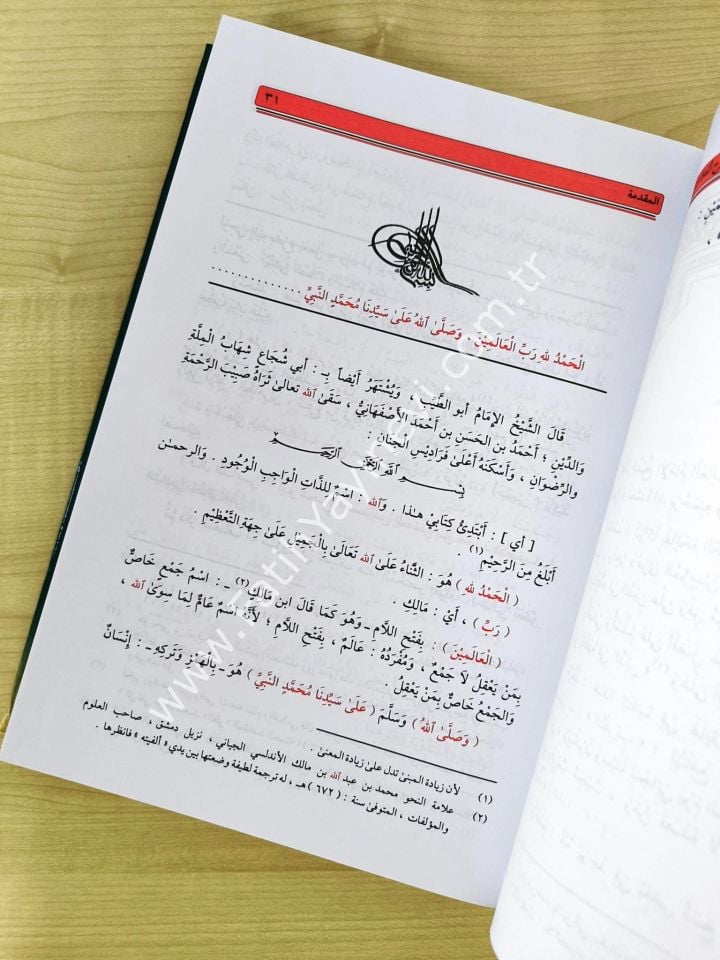 ٣١
المقدمة
الْحَمْدُ للهِ رَبِّ الْعَالَمِيْنَ ، وَصَلَّىٰ اللهُ عَلَىٰ سَيِّدِنَا مُحَمَّدٍ النَّبِيِّ ..............
قَالَ الشَّيْخُ الإِمَامُ أبو الطَّيِّبِ ، وَيُشْتَهَرُ أَيْضاً بِـ : أبي شُجَاعٍ شِهَابُ الْمِلَّةِ
وَالدِّيْنِ ؛ أَحْمَدُ بن الحَسَنِ بن أَحْمَدَ الأَصْفَهَانِيُّ ، سَقَىٰ الله تعالىٰ ثَرَاهُ صَبِيْبَ الرَّحْمَةِ
والرِّضْوَانِ ، وَأَسْكَنَهُ أَعْلَىٰ فَرَادِيْسِ الْجِنَانِ :
بِسْمِ اللهِ الرَّحْمَٰنِ الرَّحِيْمِ
[ أي ] : أَبْتَدِئُ كِتَابِيْ هٰذا . وَالله : اسْمٌ لِلذَّاتِ الْوَاجِبِ الْوُجُودِ . والرحمٰن
أَبْلَغُ مِنَ الرَّحِيْمِ (١) .
( الْحَمْدُ للهِ ) هُوَ : الثَّنَاءُ عَلَىٰ الله تَعَالَىٰ بِالْجَمِيْلِ عَلَىٰ جِهَةِ التَّعْظِيْمِ .
( رَبِّ ) ، أَيْ : مَالِكِ .
( الْعَالَمِيْنَ ) : بِفَتْحِ اللَّامِ ـ وَهُوَ كَمَا قَالَ ابن مَالِكٍ (٢) ـ : اسْمُ جَمْعٍ خَاصٌّ
بِمَنْ يَعْقِلُ لَا جَمْعٌ ، وَمُفْرَدُهُ : عَالَمٌ ، بِفَتْحِ اللَّامِ ؛ لأَنَّهُ اسْمٌ عَامٌّ لِمَا سِوَىٰ الله ،
وَالْجَمْعُ خَاصٌّ بِمَنْ يَعْقِلُ .
( وَصَلَّىٰ اللهُ ) وَسَلَّمَ ( عَلَىٰ سَيِّدِنَا مُحَمَّدٍ النَّبِيِّ ) هُوَ ـ بِالْهَمْزِ وَتَرْكِهِ ـ : إِنْسَانٌ
(١) لأن زيادة المبنىٰ تدل علىٰ زيادة المعنىٰ .
(٢) علامة النحو محمد بن عبد الله بن مالك الأندلسي الجياني ، نزيل دمشق ، صاحب العلوم
والمؤلفات ، المتوفىٰ سنة : ( ٦٧٢ ) هـ ، له ترجمة لطيفة وضعتها بين يدي « ألفيته » فانظرها .
www.FatihYayinevi.com.tr